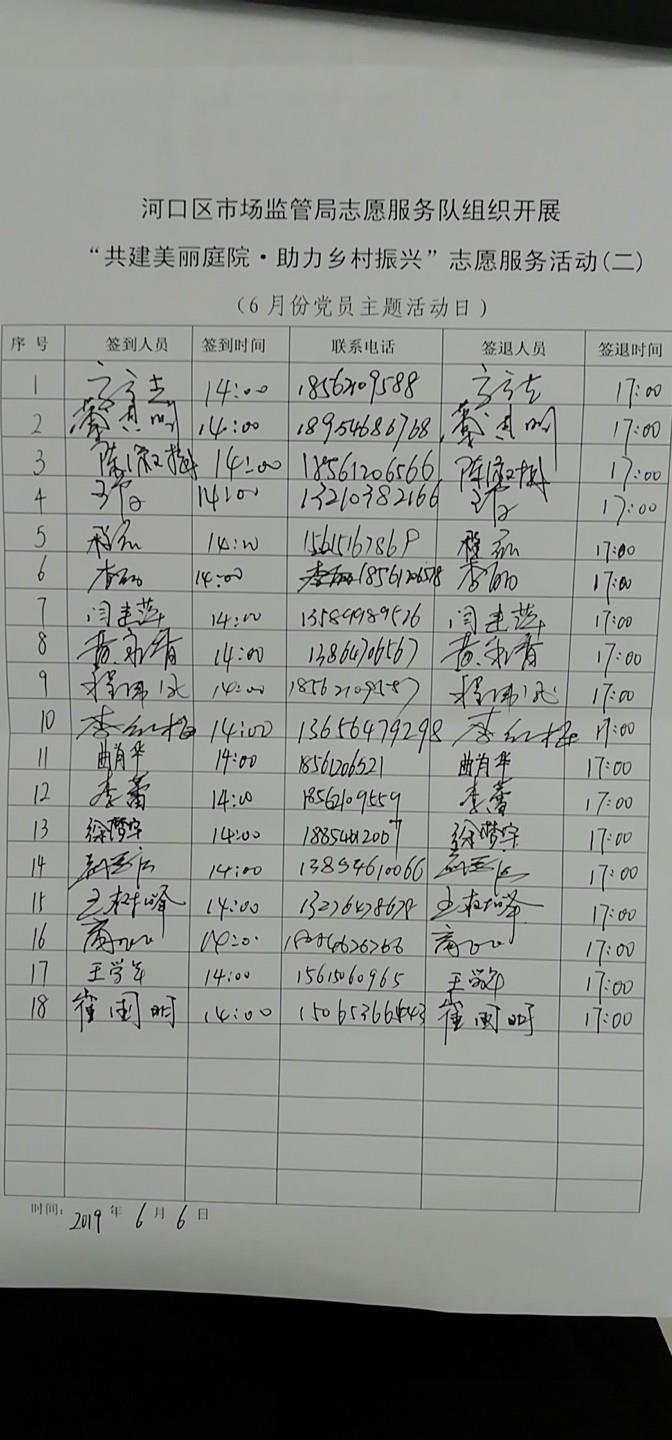 河口区市场监管局志愿服务队组织开展
“共建美丽庭院·助力乡村振兴”志愿服务活动(二)
(6月份党员主题活动日)
序号 签到人员 签到时间 联系电话 签退人员 签退时间
1 14:00 18562109588 17:00
2 14:00 18954686768 17:00
3 陈淑梅 14:00 18561206566 陈淑梅 17:00
4 14:00 13210382166 17:00
5 程磊 14:00 15615167869 程磊 17:00
6 李磊 14:00 18561206578 李磊 17:00
7 闫建萍 14:00 13589989526 闫建萍 17:00
8 14:00 13864706567 17:00
9 14:00 18562109587 17:00
10 李红梅 14:00 13656479298 李红梅 17:00
11 曲肖华 14:00 18561206521 曲肖华 17:00
12 李蕾 14:00 18562109559 李蕾 17:00
13 徐梦宇 14:00 18854612007 徐梦宇 17:00
14 14:00 13854610066 17:00
15 王树峰 14:00 13276478679 王树峰 17:00
16 14:00 17:00
17 王学军 14:00 15615060965 王学军 17:00
18 崔国明 14:00 崔国明 17:00
时间: 2019 年 6 月 6 日